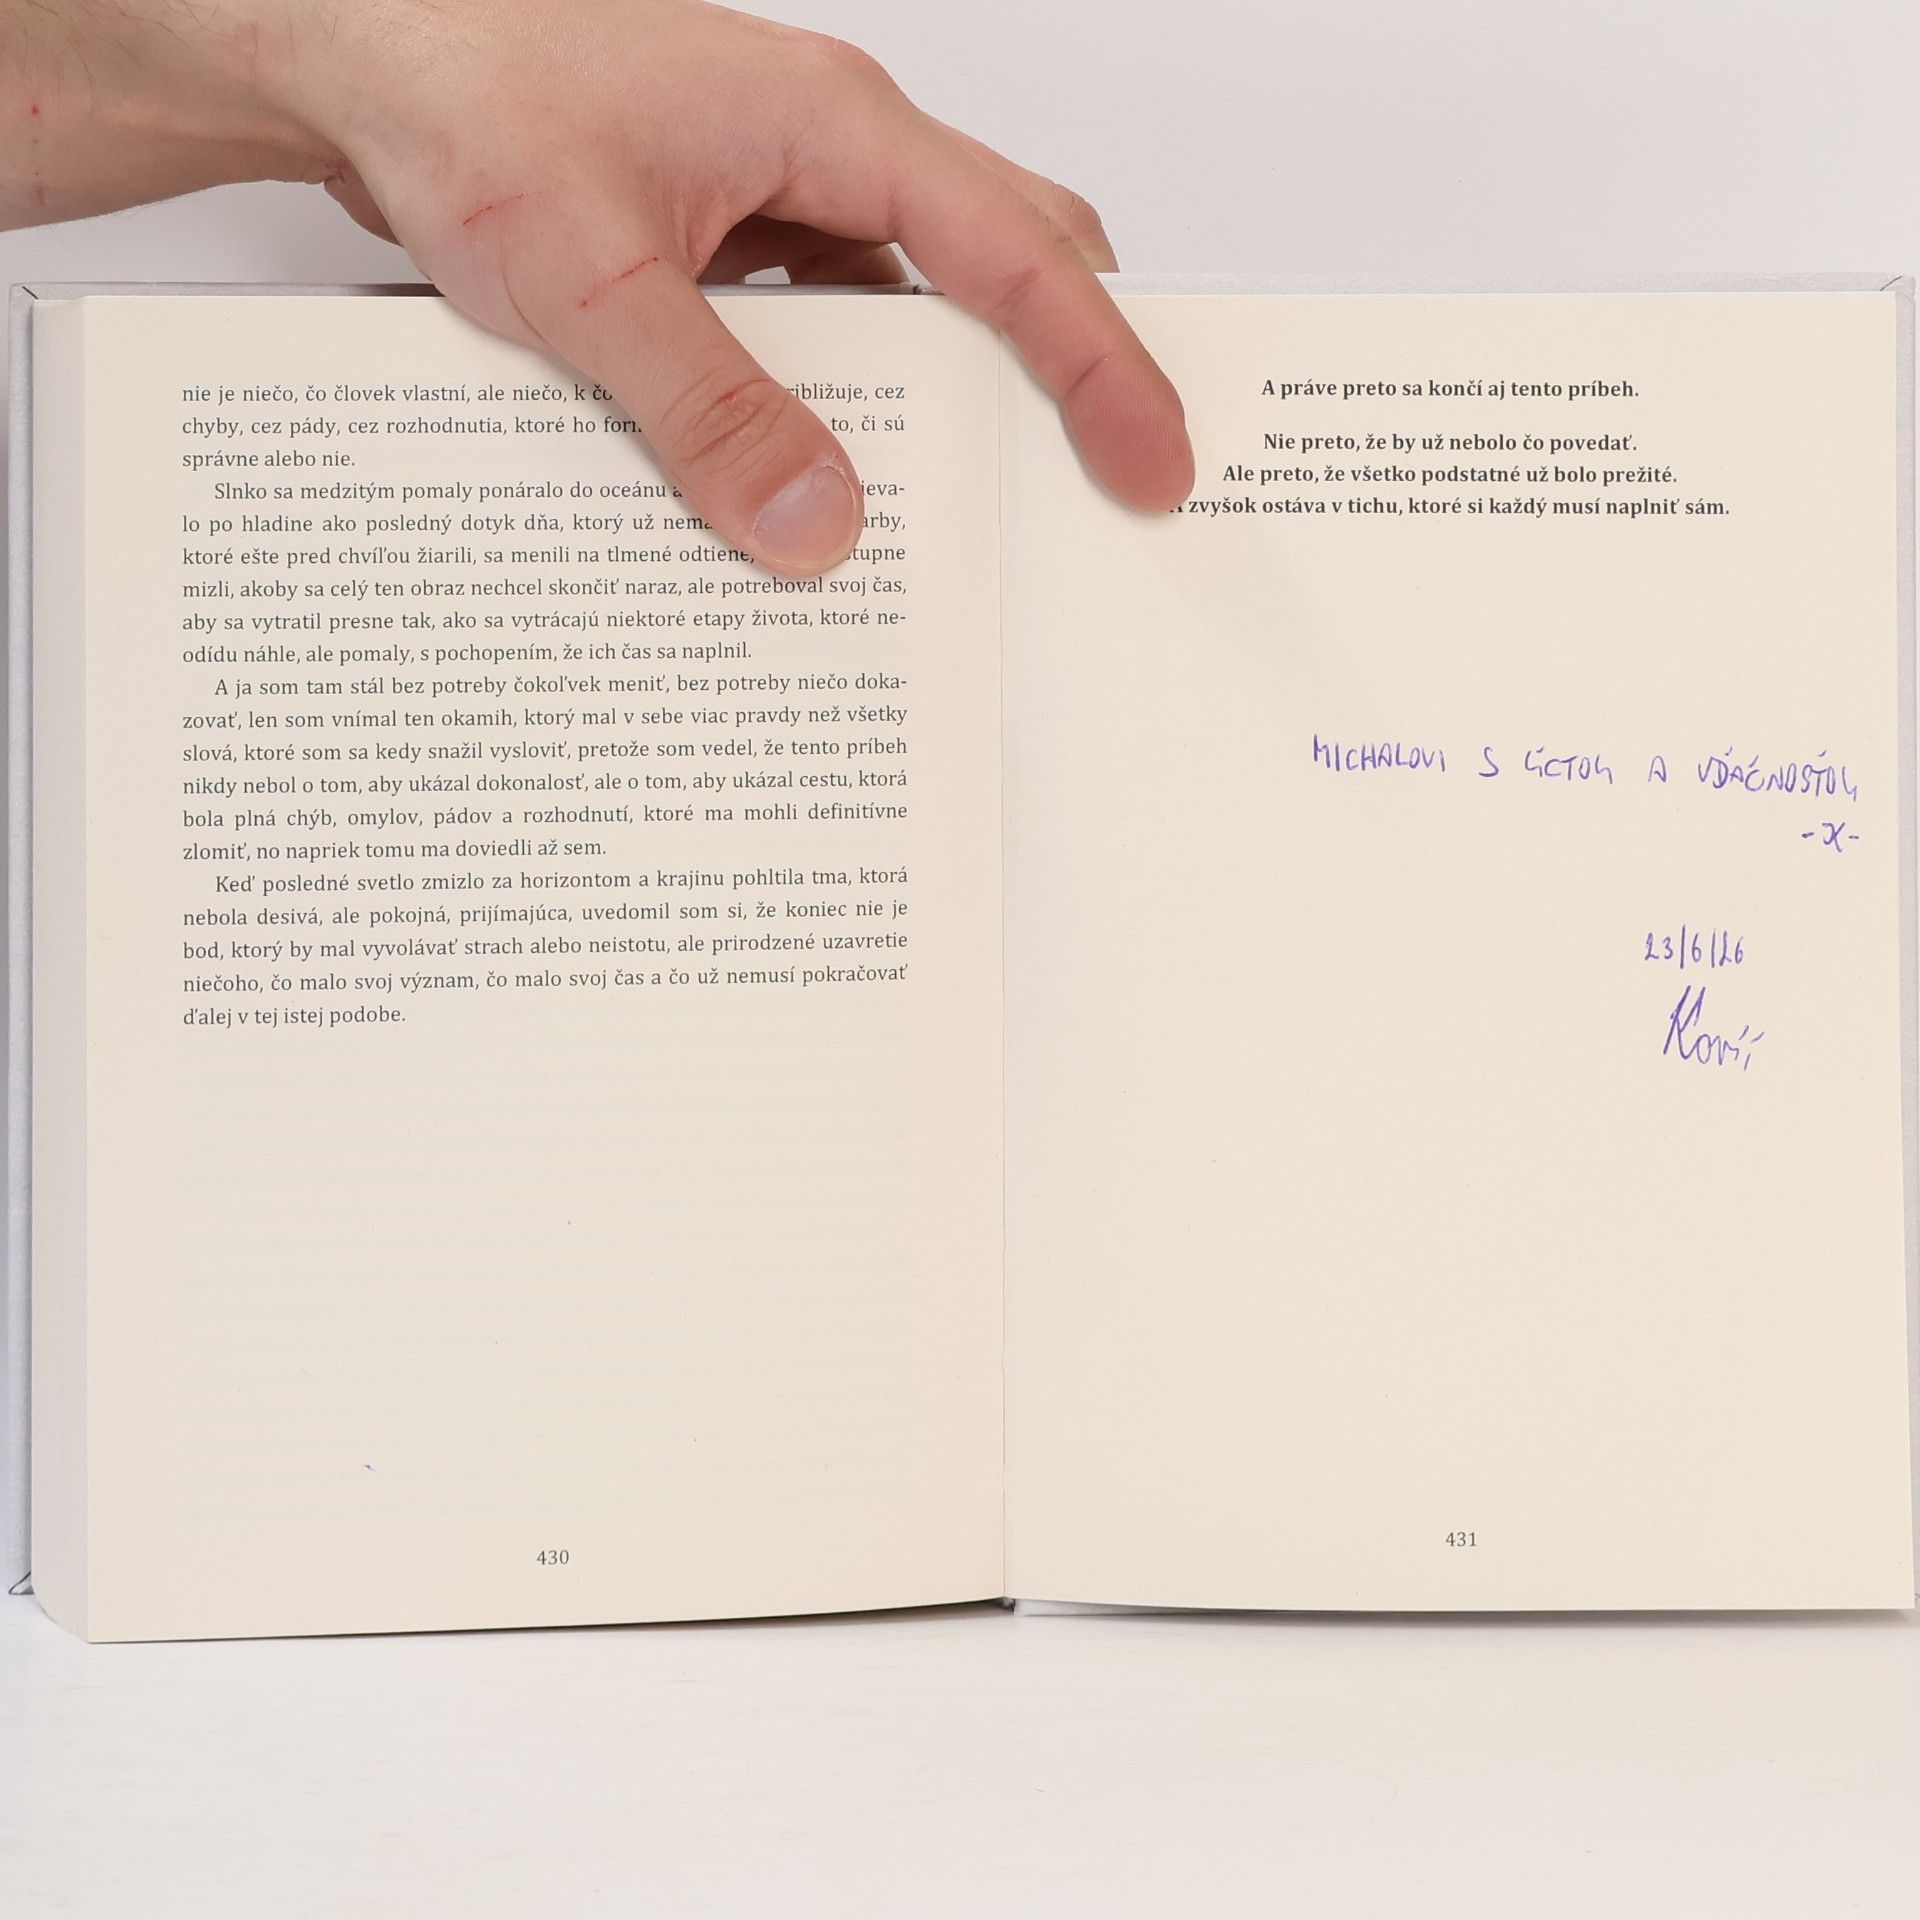 nie je niečo, čo človek vlastní, ale niečo, k približuje, cez
chyby, cez pády, cez rozhodnutia, ktoré ho to, či sú
správne alebo nie.
Slnko sa medzitým pomaly ponáralo do oceánu
lo po hladine ako posledný dotyk dňa, ktorý už
ktoré ešte pred chvíľou žiarili, sa menili na tlmené odtiene,
mizli, akoby sa celý ten obraz nechcel skončiť naraz, ale potreboval svoj čas,
aby sa vytratil presne tak, ako sa vytrácajú niektoré etapy života, ktoré ne-
odídu náhle, ale pomaly, s pochopením, že ich čas sa naplnil.
A ja som tam stál bez potreby čokoľvek meniť, bez potreby niečo doka-
zovať, len som vnímal ten okamih, ktorý mal v sebe viac pravdy než všetky
slová, ktoré som sa kedy snažil vysloviť, pretože som vedel, že tento príbeh
nikdy nebol o tom, aby ukázal dokonalosť, ale o tom, aby ukázal cestu, ktorá
bola plná chýb, omylov, pádov a rozhodnutí, ktoré ma mohli definitívne
zlomiť, no napriek tomu ma doviedli až sem.
Keď posledné svetlo zmizlo za horizontom a krajinu pohltila tma, ktorá
nebola desivá, ale pokojná, prijímajúca, uvedomil som si, že koniec nie je
bod, ktorý by mal vyvolávať strach alebo neistotu, ale prirodzené uzavretie
niečoho, čo malo svoj význam, čo malo svoj čas a čo už nemusí pokračovať
ďalej v tej istej podobe.
430
A práve preto sa končí aj tento príbeh.
Nie preto, že by už nebolo čo povedať.
Ale preto, že všetko podstatné už bolo prežité.
A zvyšok ostáva v tichu, ktoré si každý musí naplniť sám.
MICHALOVI S ÚCTOU A VĎAČNOSŤOU
-X-
23/6/26
431